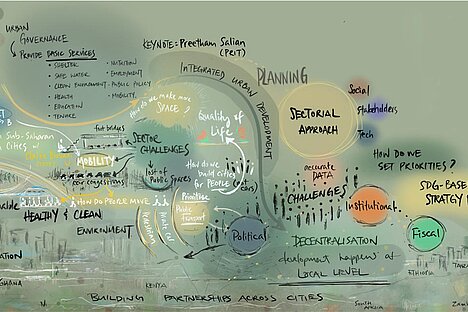 URBAN
GOVERNANCE
PROVIDE BASIC SERVICES
• SHELTER
• SAFE WATER
• CLEAN ENVIRONMENT
• HEALTH
• EDUCATION
• TENURE
• NUTRITION
• EMPLOYMENT
• PUBLIC POLICY
• MOBILITY
KEYNOTE = Preetham Salian
(PRIT)
INTEGRATED URBAN DEVELOPMENT
PLANNING
How do we make more
SPACE?
Quality of
Life
SECTORIAL
APPROACH
Social
Stakeholders
Tech
SUB-SAHARAN
CITIES
foot bridges
MOBILITY
SECTOR
CHALLENGES
Lost of
Public Spaces
How do we
build cities
for PEOPLE (not
cars)
accurate
DATA
CHALLENGES
HOW DO WE
SET PRIORITIES?
SDG-BASE
STRATEGY
HOW DO PEOPLE MOVE
HEALTHY & CLEAN
ENVIRONMENT
Prioritise
Public
transport
Private car
Pedestrian
Political
Institutional
Fiscal
DECENTRALISATION
development happens at
LOCAL LEVEL
ATION
GHANA
KENYA
SOUTH
AFRICA
ETHIOPIA
BUILDING PARTNERSHIPS ACROSS CITIES